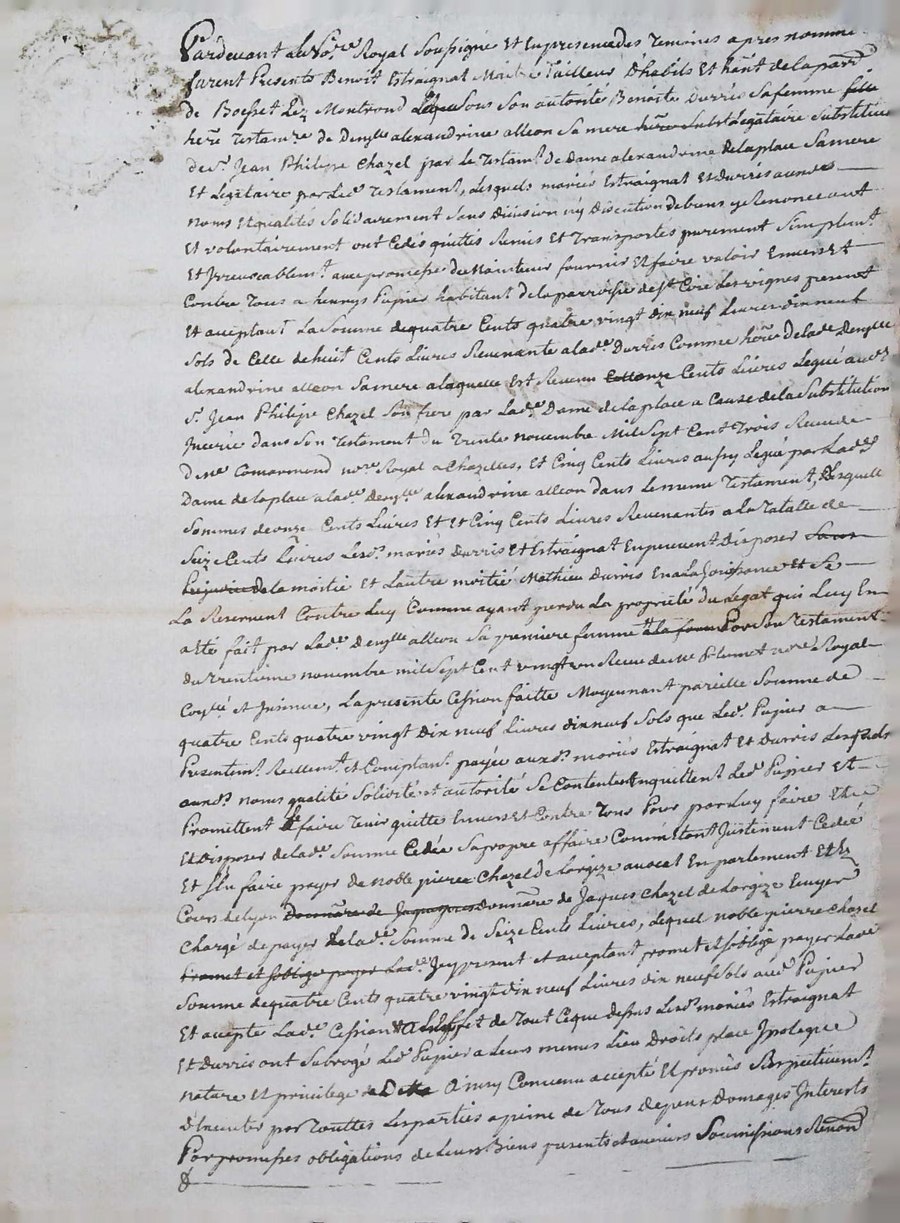 Pardevant le No.re Royal Soussigné Et En presence des Temoins apres nommé
furent Presents Benoit Estraignat Maitre Tailleur Dhabits Et hant de la parr.
de Boisset Lez Montrond Sous Son autorité Benoite Durris Sa femme fille
here Testam.re de Den.lle alexandrine alleon Sa mere Legataire Substituée
de s.r Jean Philippe Chazel par le Testam.t de Dame alexandrine Delaplace Sa mere
Et Legataire par Led. Testament, Lesquels mariés Estraignat Et Durris auxd.
noms Et qualités Solidairement Sans Division ny Discution de biens y Renonceant
Et volontairement ont Cedés quittés Remis Et Transportés purement Simplem.t
Et Irrevocablem.t avec promesse de Maintenir fournir Et faire valoir Envers Et
Contre Tous a henrys Pupier habitant de la parroisse de s.t Cire Les vignes present
Et aceptant La Somme de quatre Cents quatre vingt dix neuf Livres dix neuf
Sols de Celle de huit Cents Livres Revenante a lad.e Durris Comme here de lad.e Den.lle
alexandrine alleon Sa mere a laquelle Est Revenu Cents Livres Legué aud.
S.r Jean Philippe Chazel Son frere par Lad.e Dame de la place a Cause de la Substitution
Incerée dans Son Testament du Trente novembre Mil Sept Cent Trois Receu de
M.e Comarmond no.re Royal a Chazelles, Et Cinq Cents Livres aussy Legué par Lad.e
Dame de la place a lad.e Den.lle alexandrine alleon dans Le meme Testament, Desquelles
Sommes de onze Cents Livres Et Et Cinq Cents Livres Revenantes a la Totalité de
Seize Cents Livres Lesd. mariés Durris Et Estraignat En peuvent Disposer Sans
prejudice De la moitié Et L'autre moitié Mathieu Durris En a La Jouissance Et Se
La Reservent Contre Luy Comme ayant perdu La propriété du Legat qui Luy En
a eté fait par Lad.e Den.lle alleon Sa premiere femme Par Son Testament
du Trentieme novembre mil Sept Cent vingt un Receu de M.e Plumet no.re Royal
Con.llé Et Jnsinué, La presente Cession faitte Moyennant pareille Somme de
quatre Cents quatre vingt Dix neuf Livres dix neuf Sols que Led. Pupier a
Presentem.t Reellem.t Et Comptant payée auxd. mariés Estraignat Et Durris Lesquels
auxd. noms qualité Solidité et autorité Se Contentent Enquittent Led. Pupier Et
Promettent Le faire Tenir quitte Envers Et Contre Tous Pour par Luy faire Et
Et Disposer de lad.e Somme Cedée Sa propre affaire Comme Etant Justement Cedée
Et S'En faire payer de noble pierre Chazel de Lorgize avocat En parlement Et Ez
Cours de Lyon Donnataire de Jaques Donnaire de Jaques Chazel de Lorgize Ecuyer
Chargé de payer Lad.e Somme de Seize Cents Livres, Lequel noble pierre Chazel
promet et soblige payer Lad.e Jcy present et aceptant promet Et Soblige payer Lad.e
Somme de quatre Cents quatre vingt dix neuf Livres dix neuf Sols aud. Pupier
Et accepte Lad.e Cession a L'Effet de Tout Ce que dessus Lesd. mariés Estraignat
Et Durris ont Subrogé Led. Pupier a Leurs memes Lieu Droits place Jpoteque
nature et privilege Ainsy Convenu accepté Et promis Respectivem.t
d'Executer par Touttes Les parties a peine de Tous Depens Domages Interests
Par promesses obligations de Leurs Biens presents et avenirs Soumissions Renon.
&